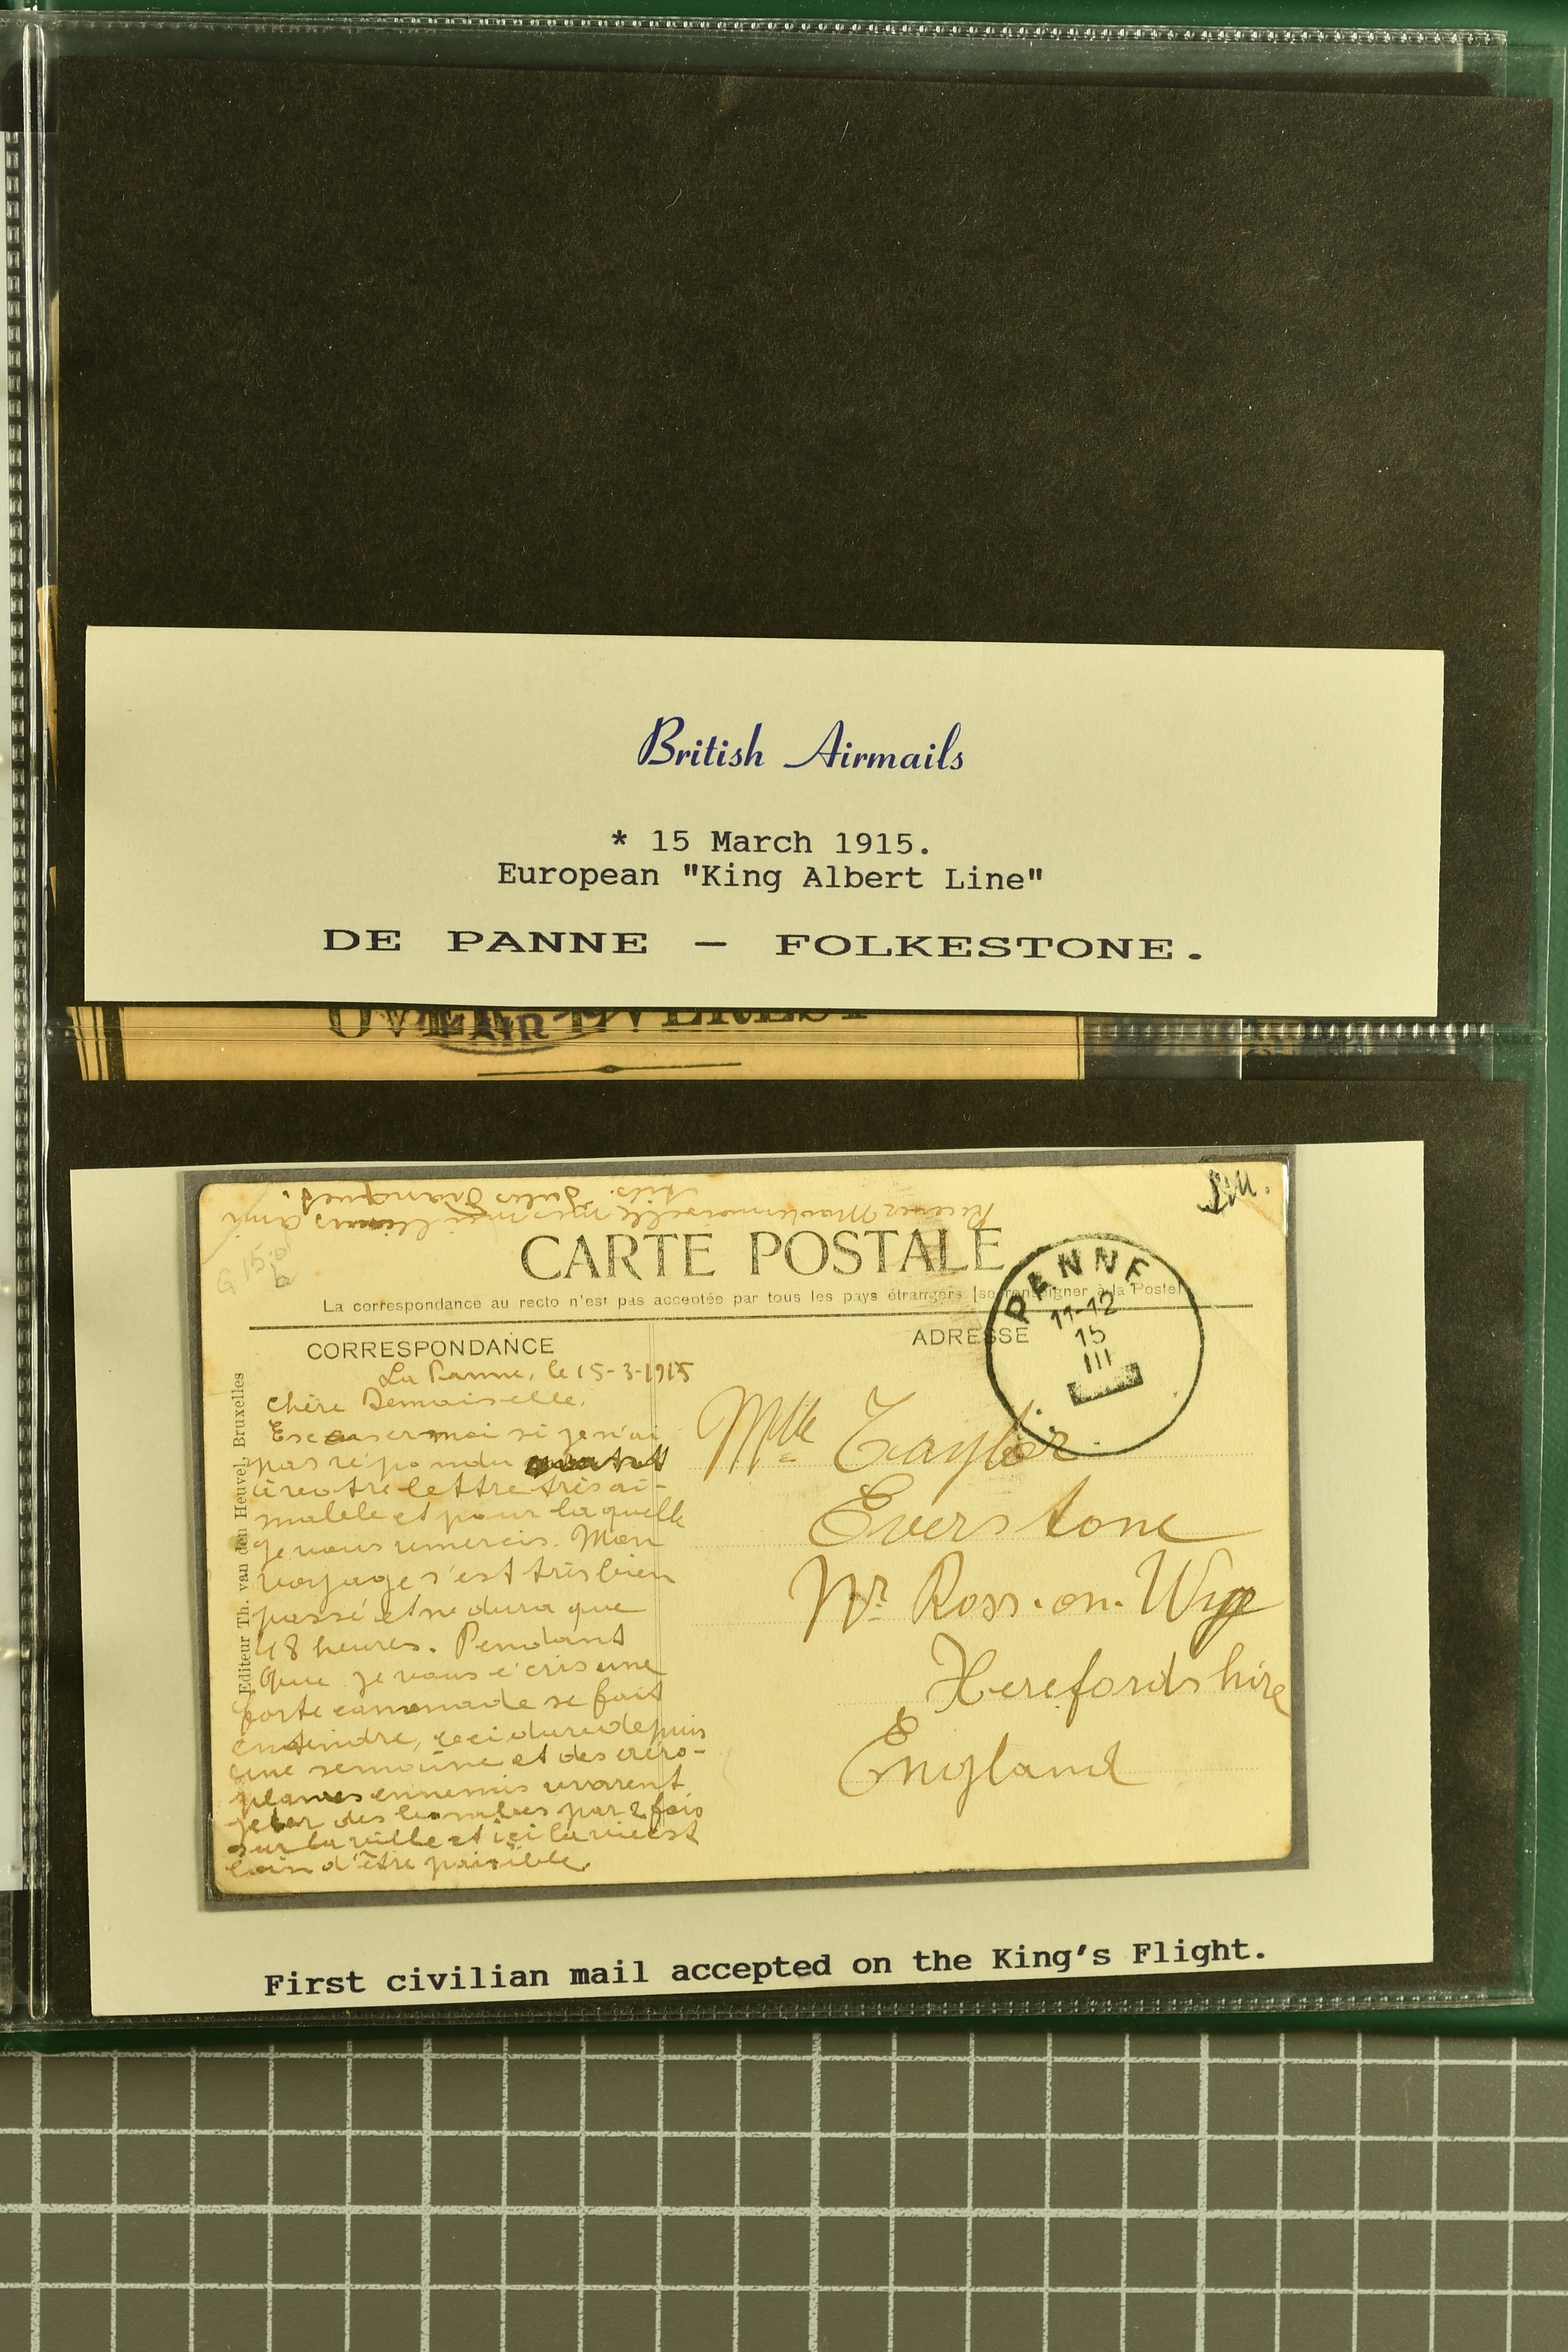 British Airmails
* 15 March 1915.
European "King Albert Line"
DE PANNE - FOLKESTONE.
OVER EVEREST
AIR
Recevez Mademoiselle mes meilleures
Jules
CARTE POSTALE
La correspondance au recto n'est pas acceptée par tous les pays étrangers (se renseigner à la Poste)
CORRESPONDANCE
ADRESSE
PANNE
11-12
15
III
La Panne, le 15-3-1915
Chère Demoiselle,
Excuser moi si je n'ai
pas répondu
à votre lettre très ai-
mable et pour laquelle
je vous remercis. Mon
voyage s'est très bien
passé et ne dura que
48 heures. Pendant
que je vous écris une
forte canonade se fait
entendre, ceci dure depuis
une semaine et des aéro-
planes ennemis
jeter des bombes par 2 fois
sur la ville et ici la vie est
loin d'être paisible.
Mlle Taylor
Everstone
Nr Ross-on-Wye
Herefordshire
England
Editeur Th. van den Heuvel, Bruxelles
First civilian mail accepted on the King's Flight.